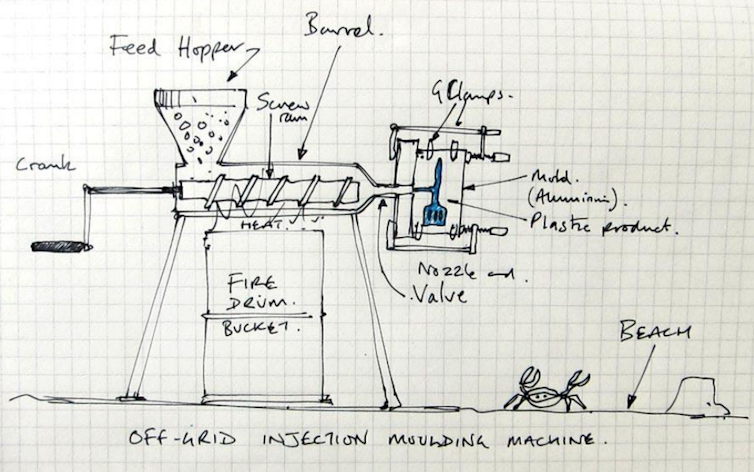 Feed Hopper
Barrel.
Screw
ram
G Clamps.
Crank
Mold.
(Aluminium).
Plastic product.
HEAT.
Nozzle and.
Valve
FIRE
DRUM.
BUCKET.
BEACH
OFF-GRID INJECTION MOULDING MACHINE.